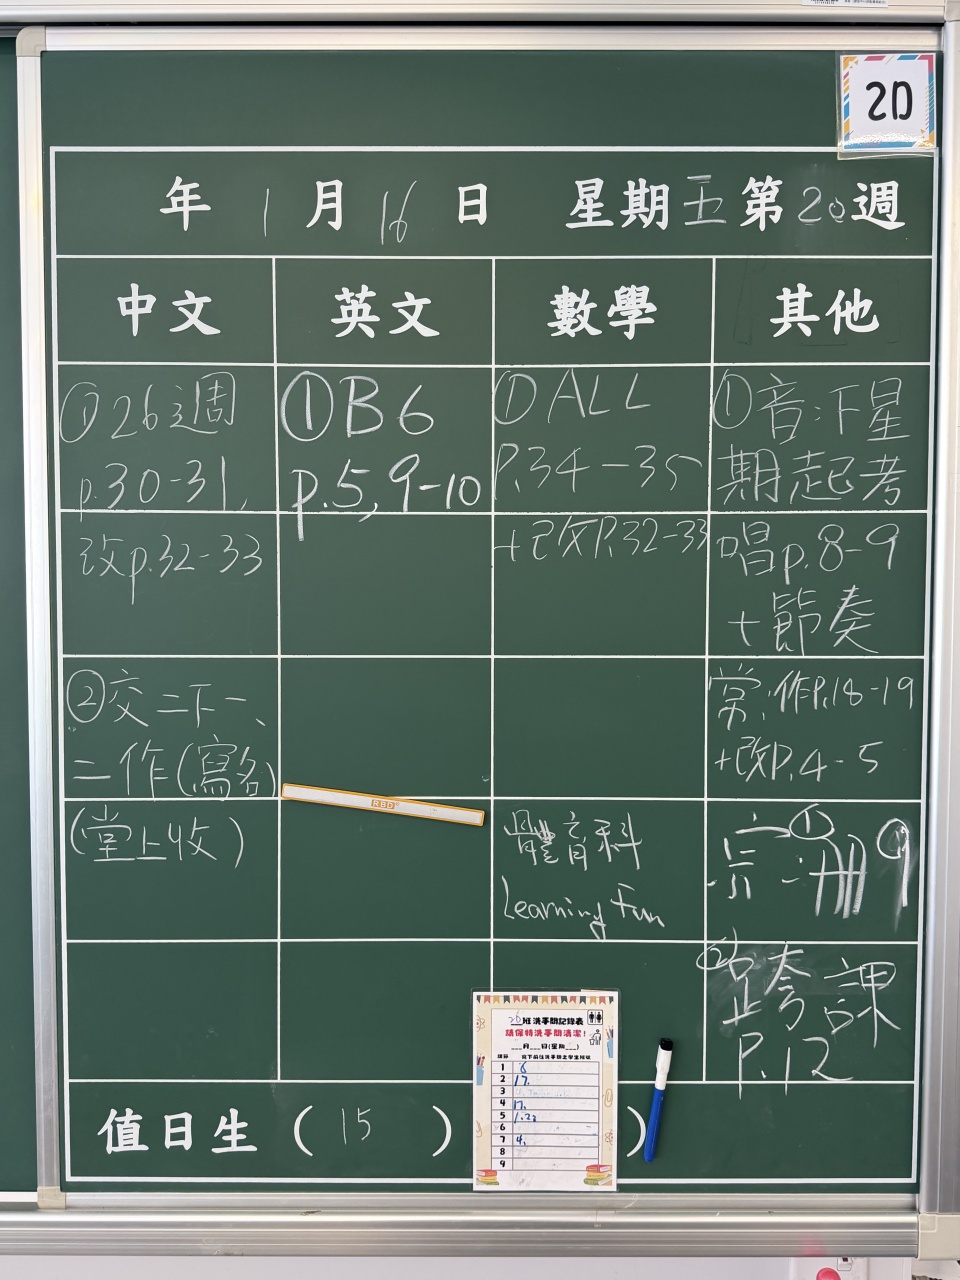 2D
年 1 月 16 日 星期五第20週
中文 英文 數學 其他
①26週
p.30-31,
改p.32-33
②交二下一、
二作(寫名)
(堂上收)
①B6
p.5,9-10
①ALL
P.34-35
+改P.32-33
體育科
Learning Fun
①音:下星
期起考
唱p.8-9
+節奏
常:作P.18-19
+改P.4-5
宗:①
跨課
P.12
RBD
2D班洗手間記錄表
請保持洗手間清潔!
___月___日(星期___)
1 6
2 17.
3
4 17.
5 1.22
6
7 4.
8
9
值日生(15 )